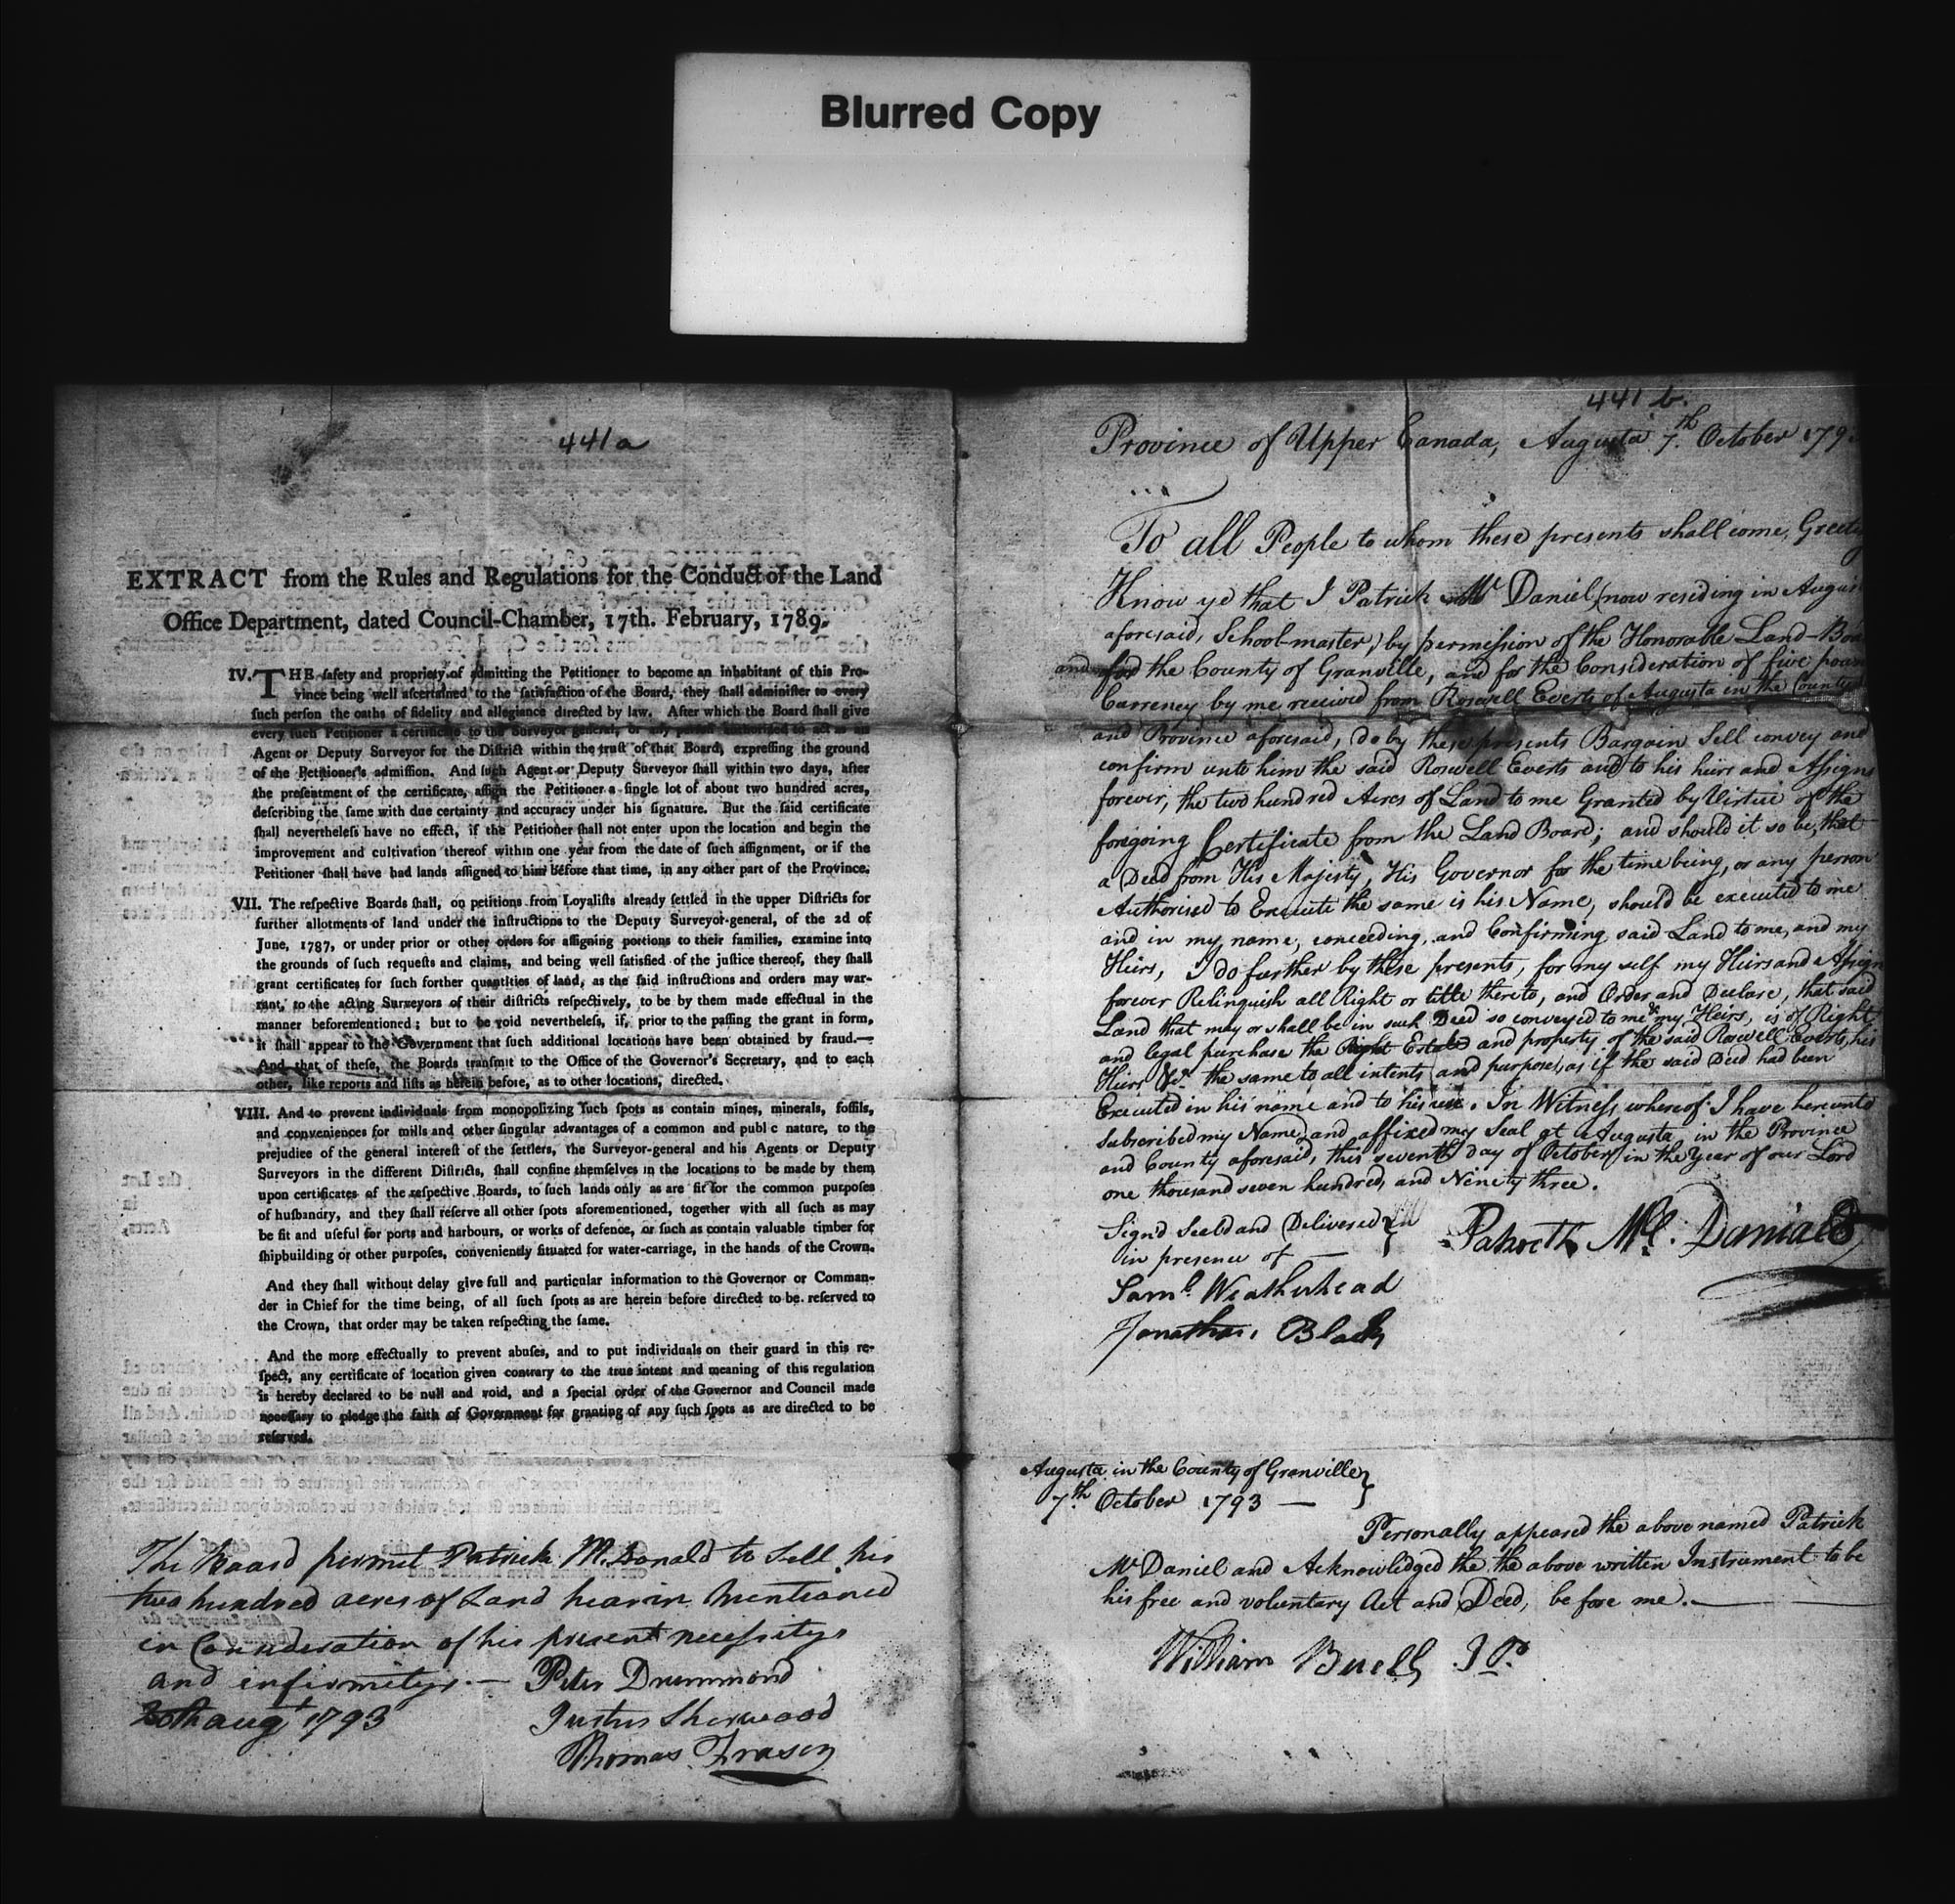 Blurred Copy
441a
EXTRACT from the Rules and Regulations for the Conduct of the Land
Office Department, dated Council-Chamber, 17th. February, 1789.
IV. THE ſafety and propriety of admitting the Petitioner to become an inhabitant of this Pro-
vince being well aſcertained to the ſatisfaction of the Board, they ſhall adminiſter to every
ſuch perſon the oaths of fidelity and allegiance directed by law. After which the Board ſhall give
every ſuch Petitioner a certificate to the Surveyor-general, or any perſon authoriſed to act as an
Agent or Deputy Surveyor for the Diſtrict within the truſt of that Board, expreſſing the ground
of the Petitioner's admiſſion. And ſuch Agent or Deputy Surveyor ſhall within two days, after
the preſentment of the certificate, aſſign the Petitioner a ſingle lot of about two hundred acres,
deſcribing the ſame with due certainty and accuracy under his ſignature. But the ſaid certificate
ſhall nevertheleſs have no effect, if the Petitioner ſhall not enter upon the location and begin the
improvement and cultivation thereof within one year from the date of ſuch aſſignment, or if the
Petitioner ſhall have had lands aſſigned to him before that time, in any other part of the Province.
VII. The reſpective Boards ſhall, on petitions from Loyaliſts already ſettled in the upper Diſtricts for
further allotments of land under the inſtructions to the Deputy Surveyor-general, of the 2d of
June, 1787, or under prior or other orders for aſſigning portions to their families, examine into
the grounds of ſuch requeſts and claims, and being well ſatisfied of the juſtice thereof, they ſhall
grant certificates for ſuch forther quantities of land, as the ſaid inſtructions and orders may war-
rant, to the acting Surveyors of their diſtricts reſpectively, to be by them made effectual in the
manner beforementioned; but to be void nevertheleſs, if, prior to the paſſing the grant in form,
it ſhall appear to the Government that ſuch additional locations have been obtained by fraud.—
And that of theſe, the Boards tranſmit to the Office of the Governor's Secretary, and to each
other, like reports and liſts as herein before, as to other locations, directed.
VIII. And to prevent individuals from monopolizing ſuch ſpots as contain mines, minerals, foſſils,
and conveniences for mills and other ſingular advantages of a common and publ c nature, to the
prejudice of the general intereſt of the ſettlers, the Surveyor-general and his Agents or Deputy
Surveyors in the different Diſtricts, ſhall confine themſelves in the locations to be made by them
upon certificates of the reſpective Boards, to ſuch lands only as are fit for the common purpoſes
of huſbandry, and they ſhall reſerve all other ſpots aforementioned, together with all ſuch as may
be fit and uſeful for ports and harbours, or works of defence, or ſuch as contain valuable timber for
ſhipbuilding or other purpoſes, conveniently ſituated for water-carriage, in the hands of the Crown.
And they ſhall without delay give full and particular information to the Governor or Comman-
der in Chief for the time being, of all ſuch ſpots as are herein before directed to be reſerved to
the Crown, that order may be taken reſpecting the ſame.
And the more effectually to prevent abuſes, and to put individuals on their guard in this re-
ſpect, any certificate of location given contrary to the true intent and meaning of this regulation
is hereby declared to be null and void, and a ſpecial order of the Governor and Council made
neceſſary to pledge the faith of Government for granting of any ſuch ſpots as are directed to be
reſerved.
The Board permit Patrick McDonald to Sell his
two hundred acres of Land hearin Mentioned
in Consideration of his present necessitys
and infirmitys.— Peter Drummond
20th augt 1793 Justus Sherwood
Thomas Fraser
441 b.
Province of Upper Canada, Augusta 7th October 179
To all People to whom these presents shall come, Greeti
Know ye that I Patrick Mc Daniel, (now residing in August
aforesaid, School-master,) by permission of the Honorable Land-Boa
and for the County of Granville, and for the Consideration of five poun
Currency by me received from Roswell Everts of Augusta in the County
and Province aforesaid, do by these presents Bargain Sell convey and
confirm unto him the said Roswell Everts and to his heirs and Assigns
forever, the two hundred Acres of Land to me Granted by Virtue of the
foregoing Certificate from the Land Board; and should it so be, that
a Deed from His Majesty, His Governor for the time being, or any person
Authorised to Execute the same is his Name, should be executed to me
and in my name, conceeding, and Confirming said Land to me, and my
Heirs, I do further by these presents, for my self my Heirs and Assign
forever Relinquish all Right or title thereto, and Order and Declare, that said
Land that may or shall be in such Deed so conveyed to me & my Heirs, is of Right
and legal purchase the Right Estate and property of the said Roswell Everts, his
Heirs &c. the same to all intents and purposes, as if the said Deed had been
Executed in his name and to his use. In Witness whereof I have hereunto
subscribed my Name, and affixed my Seal at Augusta in the Province
and County aforesaid, this seventh day of October, in the Year of our Lord
one thousand seven hundred, and Ninety three.
Sign'd Seald and Delivered
in presence of —
Patrick Mc. Daniel
Saml. Weatherhead
Jonathan Black
Augusta in the County of Granville
7th October 1793 —
Personally appeared the above named Patrick
Mc Daniel and Acknowledged the the above written Instrument to be
his free and voluntary Act and Deed, before me.—
William Buell JP.